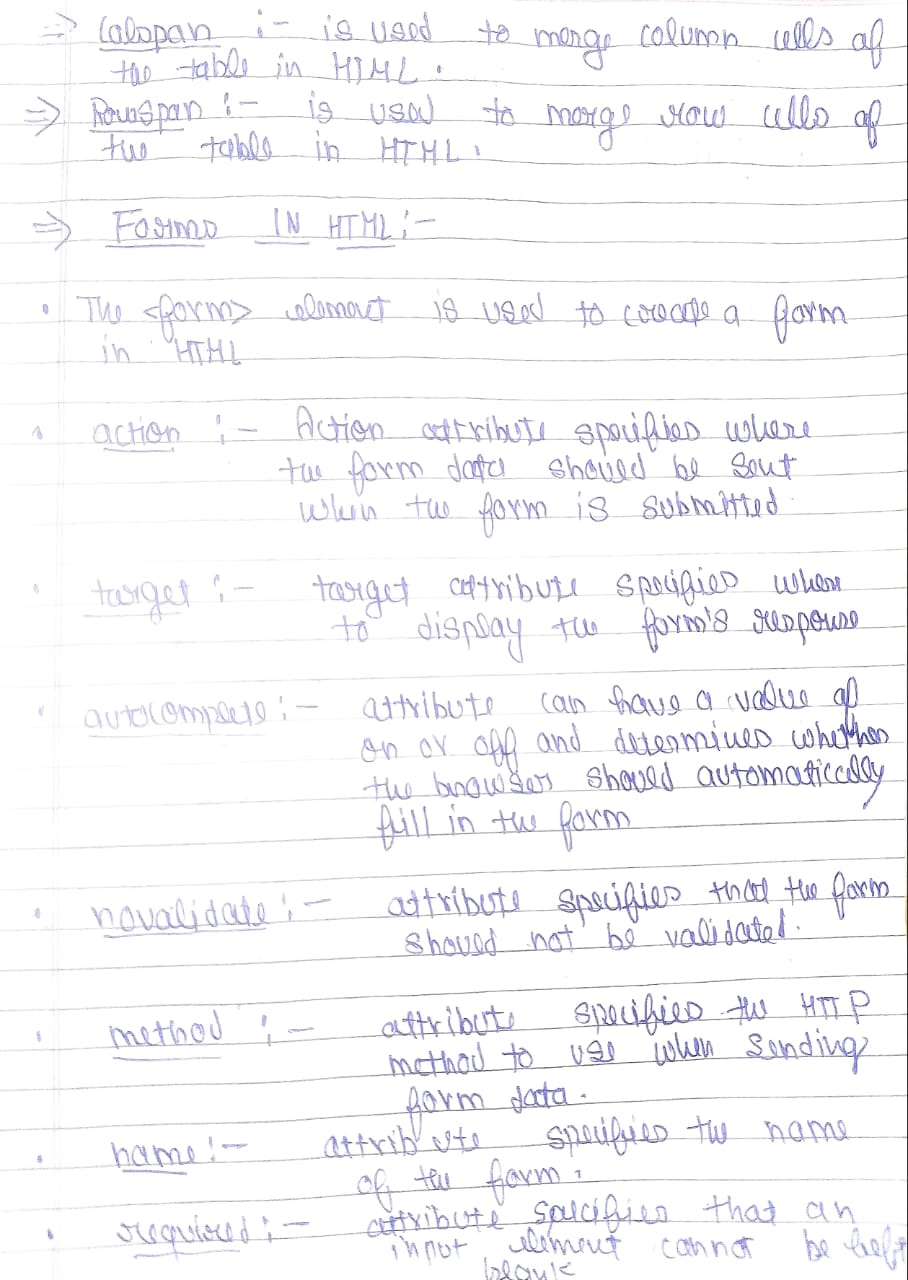 ⇒ Colspan :- is used to merge column cells of
the table in HTML.
⇒ Rowspan :- is used to merge row cells of
the table in HTML.
⇒ Forms IN HTML :-
• The <form> element is used to create a form
in HTML
• action :- Action attribute specifies where
the form data should be sent
when the form is submitted
• target :- target attribute specifies where
to display the form's response
• autocomplete :- attribute can have a value of
on or off and determines whether
the browser should automatically
fill in the form
• novalidate :- attribute specifies that the form
should not be validated.
• method :- attribute specifies the HTTP
method to use when sending
form data.
• name :- attribute specifies the name
of the form.
• required :- attribute specifies that an
input element cannot be left
blank